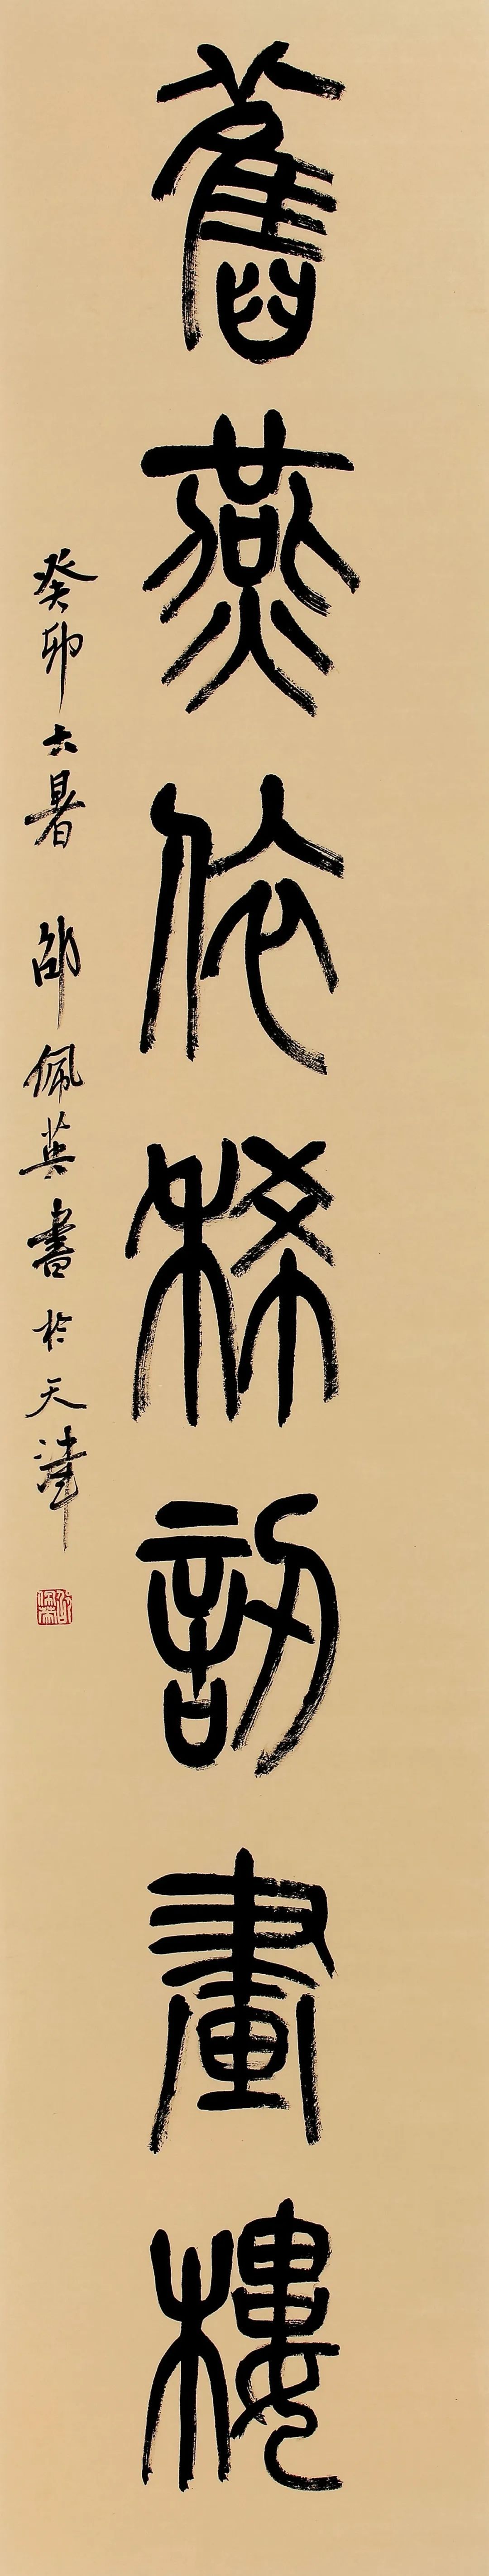 舊燕依稀訒畫樓
癸卯大暑 邵佩英書於天津